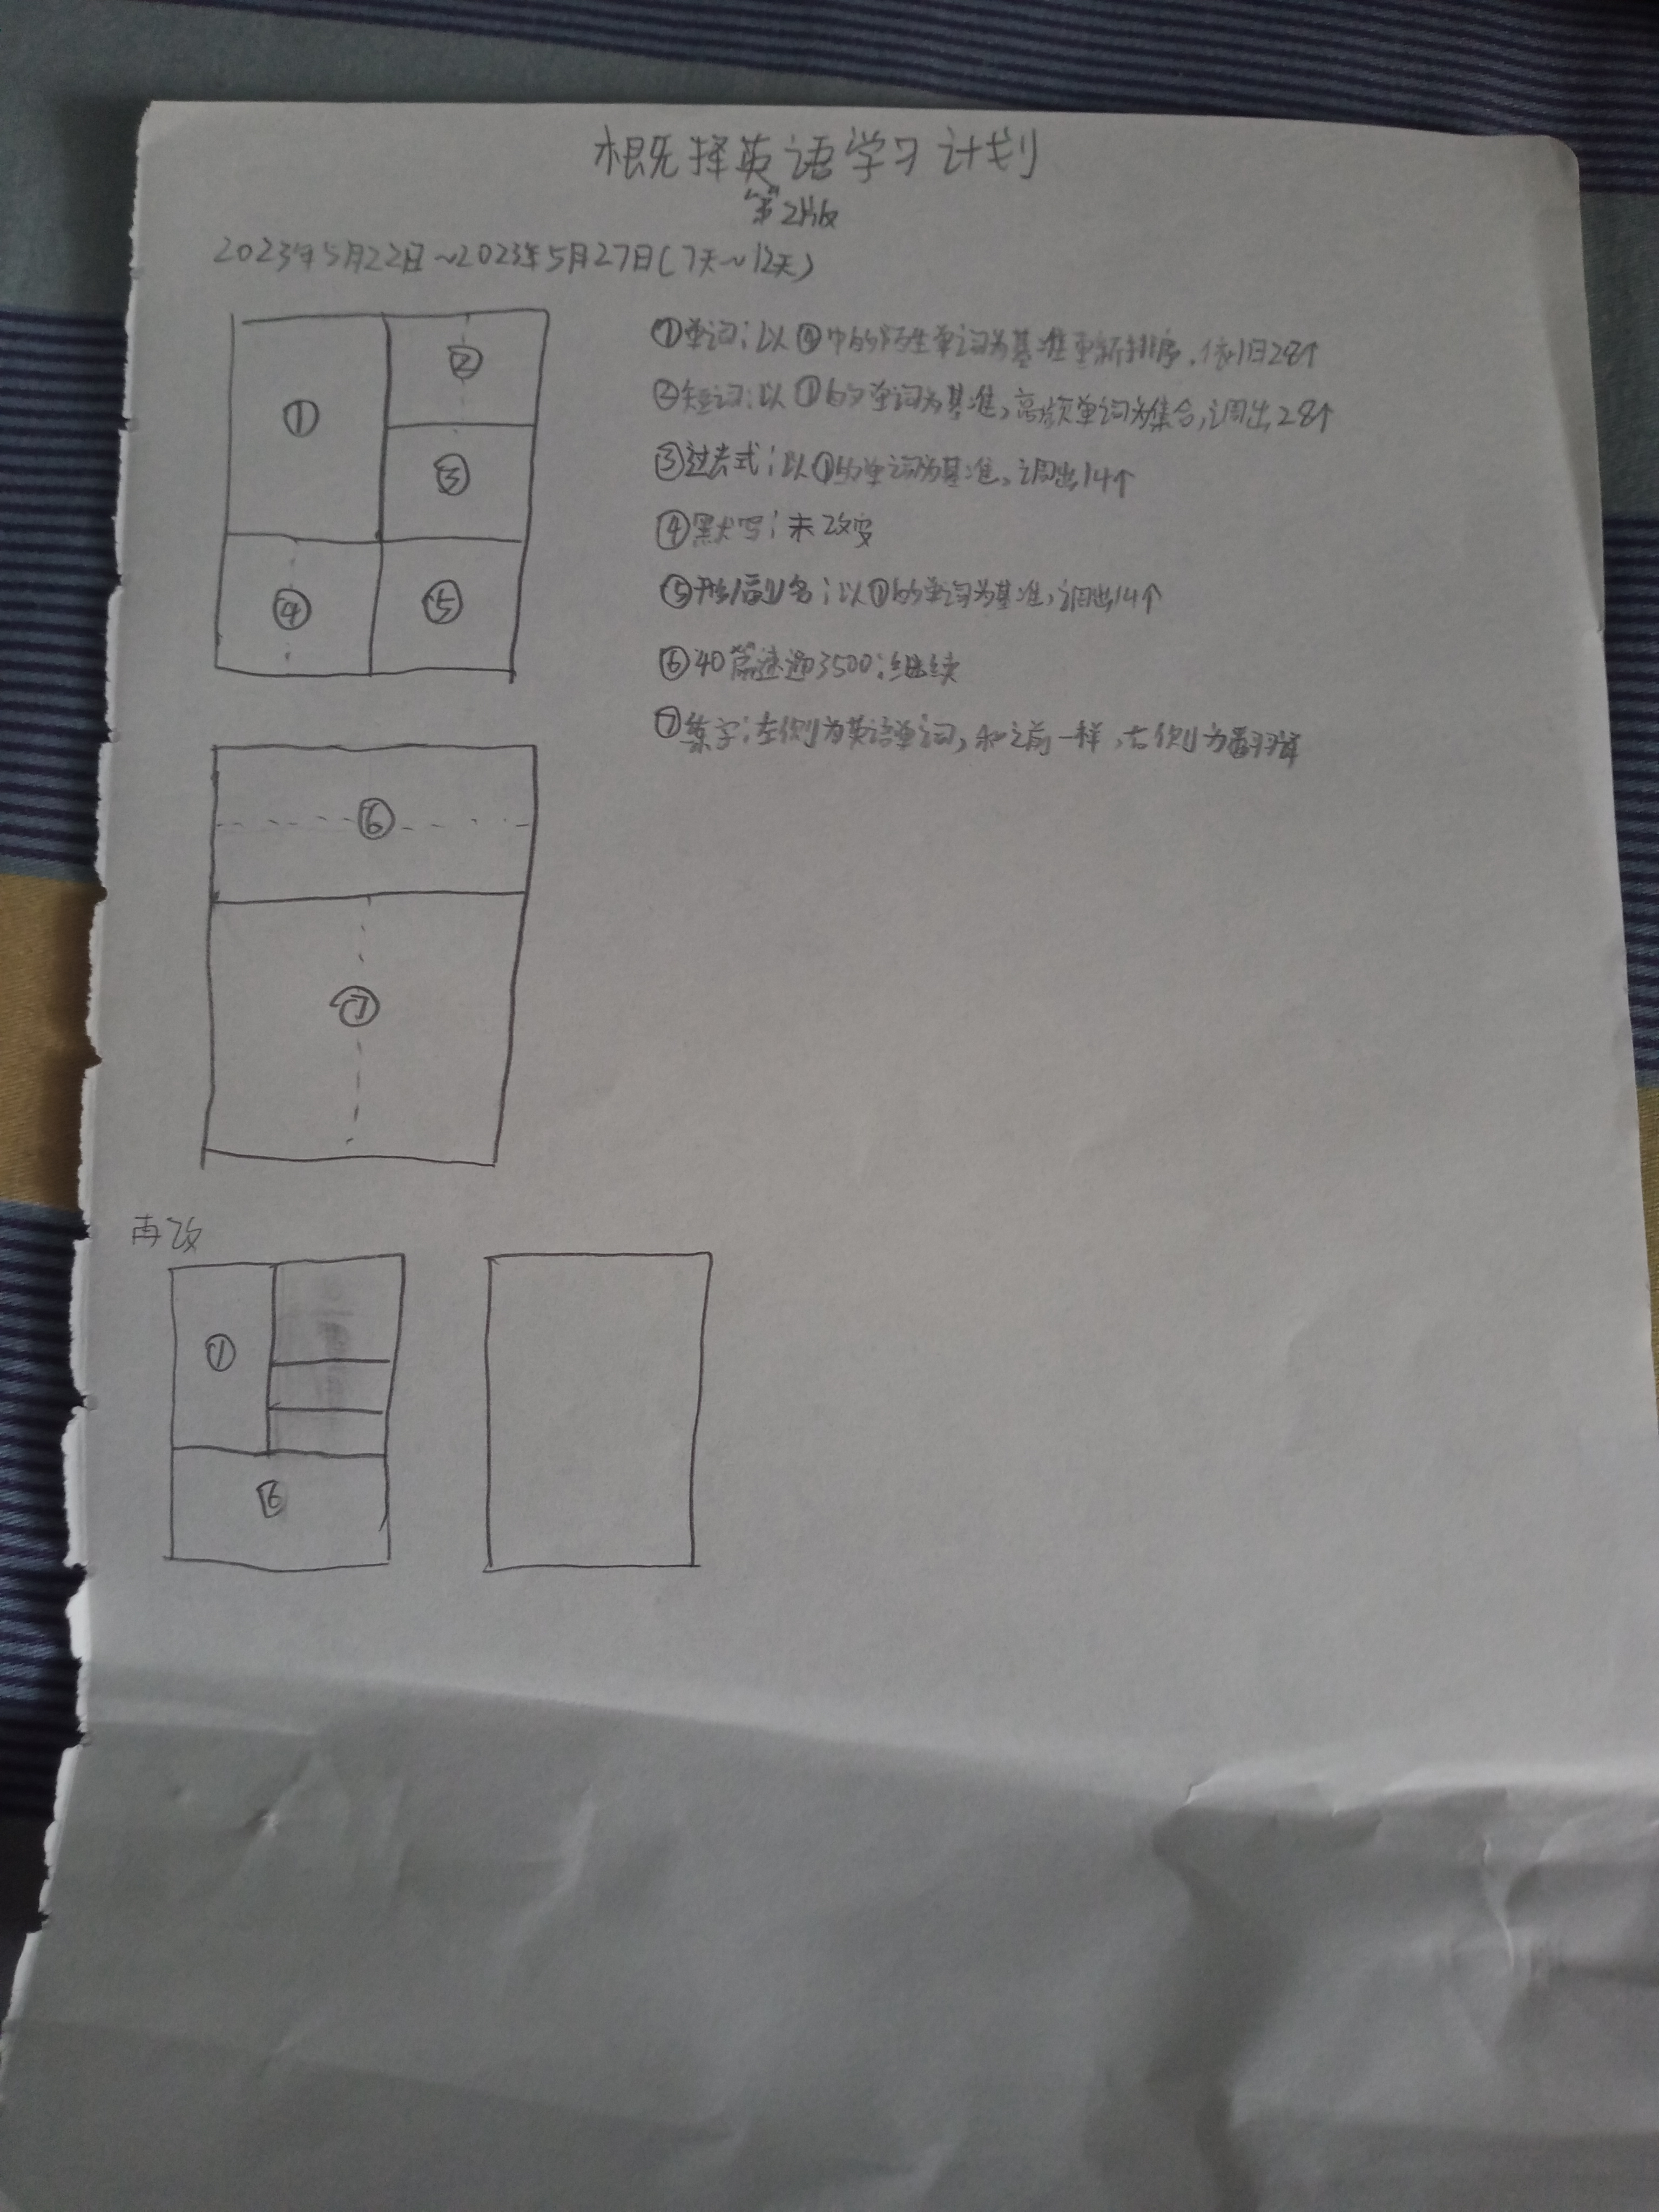 概择英语学习计划
第2版
2023年5月22日~2023年5月27日(7天~12天)
①单词:以④中的陌生单词为基准重新排序,依旧28个
②短词:以①的单词为基准,高频单词为集合,调出28个
③过去式:以①的单词为基准,调出14个
④默写:未改变
⑤形/副/名:以①的单词为基准,调出14个
⑥40篇速通3500:继续
⑦练字:左侧为英语单词,和之前一样,右侧为翻译
①
②
③
④
⑤
⑥
⑦
再改
①
⑥